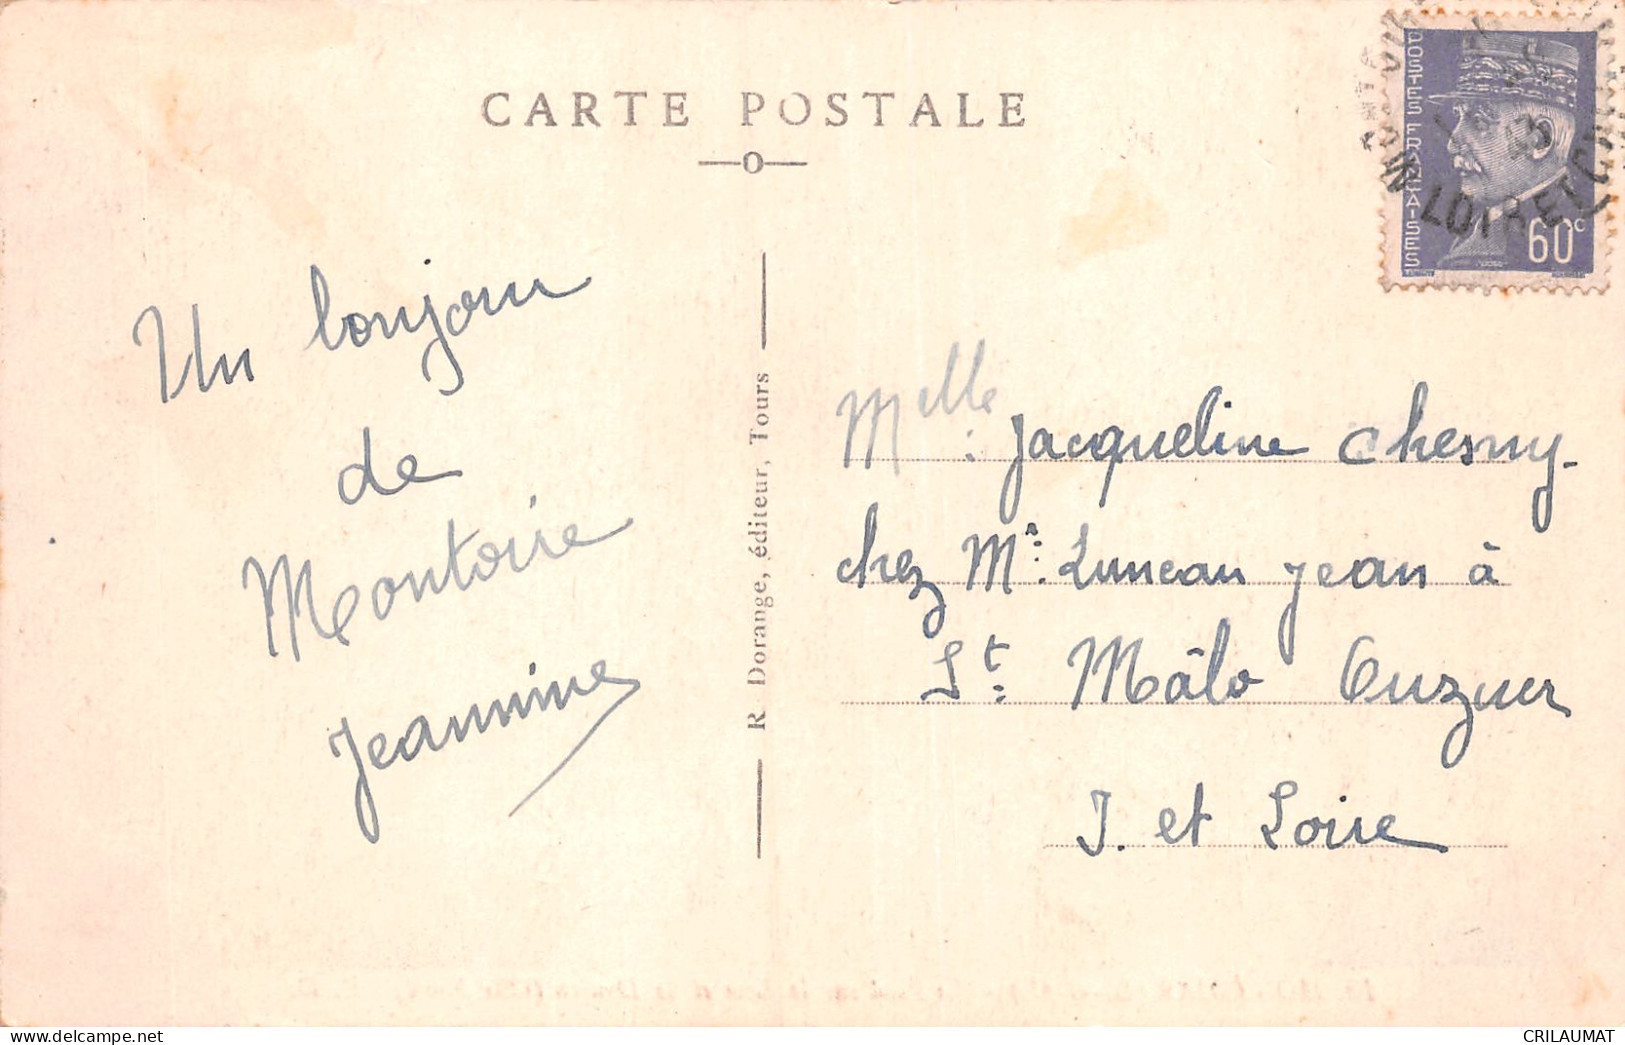 CARTE POSTALE
Un bonjour
de
Montoire
Jeannine
R Dorange, éditeur, Tours
Melle : Jacqueline Chesny.
chez Mr: Luneau Jean à
St: Mâlo Ouzuer
J. et Loire
POSTES FRANÇAISES
60c
LOIR ET CHER
CRILAUMAT